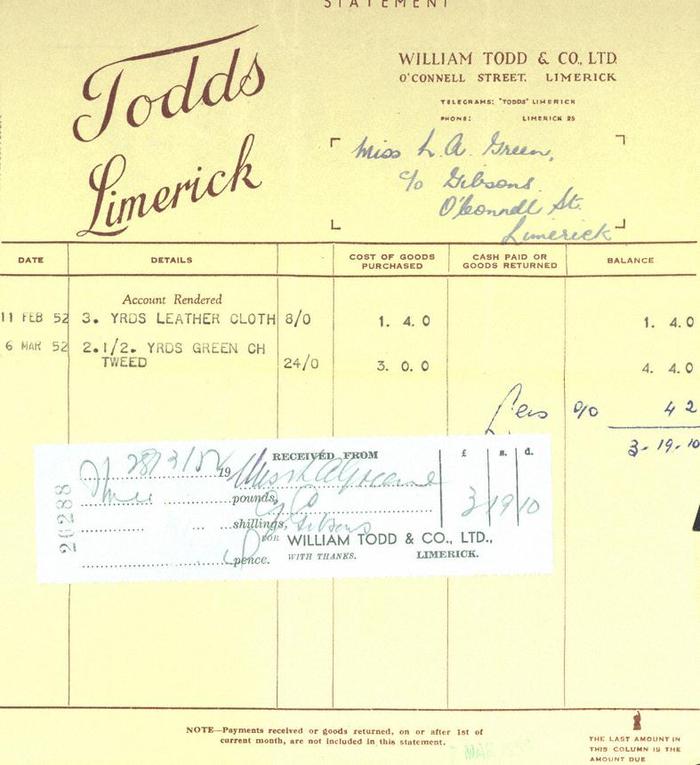 STATEMENT
Todds
Limerick
WILLIAM TODD & CO., LTD.
O'CONNELL STREET. LIMERICK
TELEGRAMS: "TODDS" LIMERICK
PHONE: LIMERICK 25
Miss L. A. Green,
c/o Gibsons.
O'Connell St.
Limerick
DATE DETAILS COST OF GOODS PURCHASED CASH PAID OR GOODS RETURNED BALANCE
Account Rendered
11 FEB 52 3. YRDS LEATHER CLOTH 8/0 1. 4. 0 1. 4. 0
6 MAR 52 2.1/2. YRDS GREEN CH
TWEED 24/0 3. 0. 0 4. 4. 0
Less 4 2
3-19-10
20288
28/3/52 19 RECEIVED FROM £ s. d.
Miss L A Green
pounds, c/o 3 19 10
shillings, Gibsons
FOR WILLIAM TODD & CO., LTD.,
pence. WITH THANKS. LIMERICK.
NOTE—Payments received or goods returned, on or after 1st of
current month, are not included in this statement.
THE LAST AMOUNT IN
THIS COLUMN IS THE
AMOUNT DUE